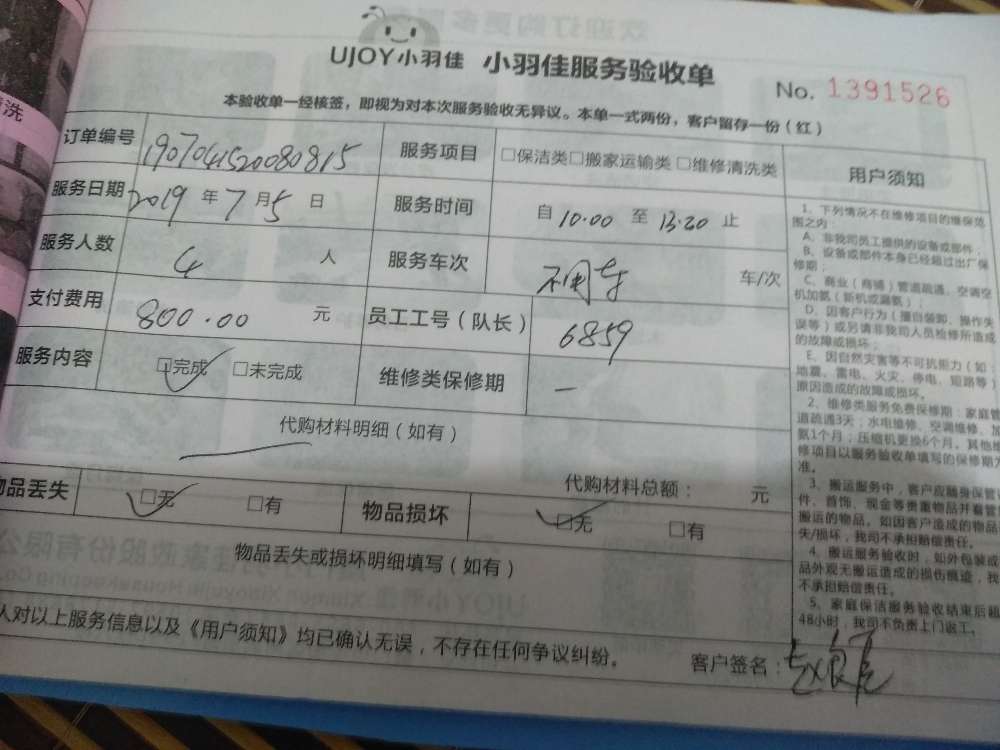 洗
UJOY小羽佳 小羽佳服务验收单
No. 1391526
本验收单一经核签，即视为对本次服务验收无异议。本单一式两份，客户留存一份（红）
订单编号 1907041520080815 服务项目 □保洁类□搬家运输类 □维修清洗类
服务日期 2019 年 7 月 5 日 服务时间 自 10.00 至 13.20 止
服务人数 4 人 服务车次 不用车 车/次
支付费用 800.00 元 员工工号（队长） 6859
服务内容 □完成 □未完成 维修类保修期 —
代购材料明细（如有）
代购材料总额： 元
物品丢失 □无 □有 物品损坏 □无 □有
物品丢失或损坏明细填写（如有）
人对以上服务信息以及《用户须知》均已确认无误，不存在任何争议纠纷。
客户签名：
用户须知
1、下列情况不在维修项目的维保范
围之内：
A、非我司员工提供的设备或部件；
B、设备或部件本身已经超过出厂保
修期；
C、商业（商铺）管道疏通、空调空
机加氨（新机或漏氨）；
D、因客户行为（擅自装卸、操作失
误等）或另请非我司人员检修所造成
的故障或损坏；
E、因自然灾害等不可抗能力（如：
地震、雷电、火灾、停电、短路等）
原因造成的故障或损坏。
2、维修类服务免费保修期：家庭管
道疏通3天；水电维修、空调维修、加
氨1个月；压缩机更换6个月。其他维
修项目以服务验收单填写的保修期为
准。
3、搬运服务中，客户应随身保管证
件、首饰、现金等贵重物品并看管
搬运的物品，如因客户造成的物品
失/损坏，我司不承担赔偿责任。
4、搬运服务验收时，如外包装或
品外观无搬运造成的损伤痕迹，我
不承担赔偿责任。
5、家庭保洁服务验收结束后超
48小时，我司不负责上门返工。